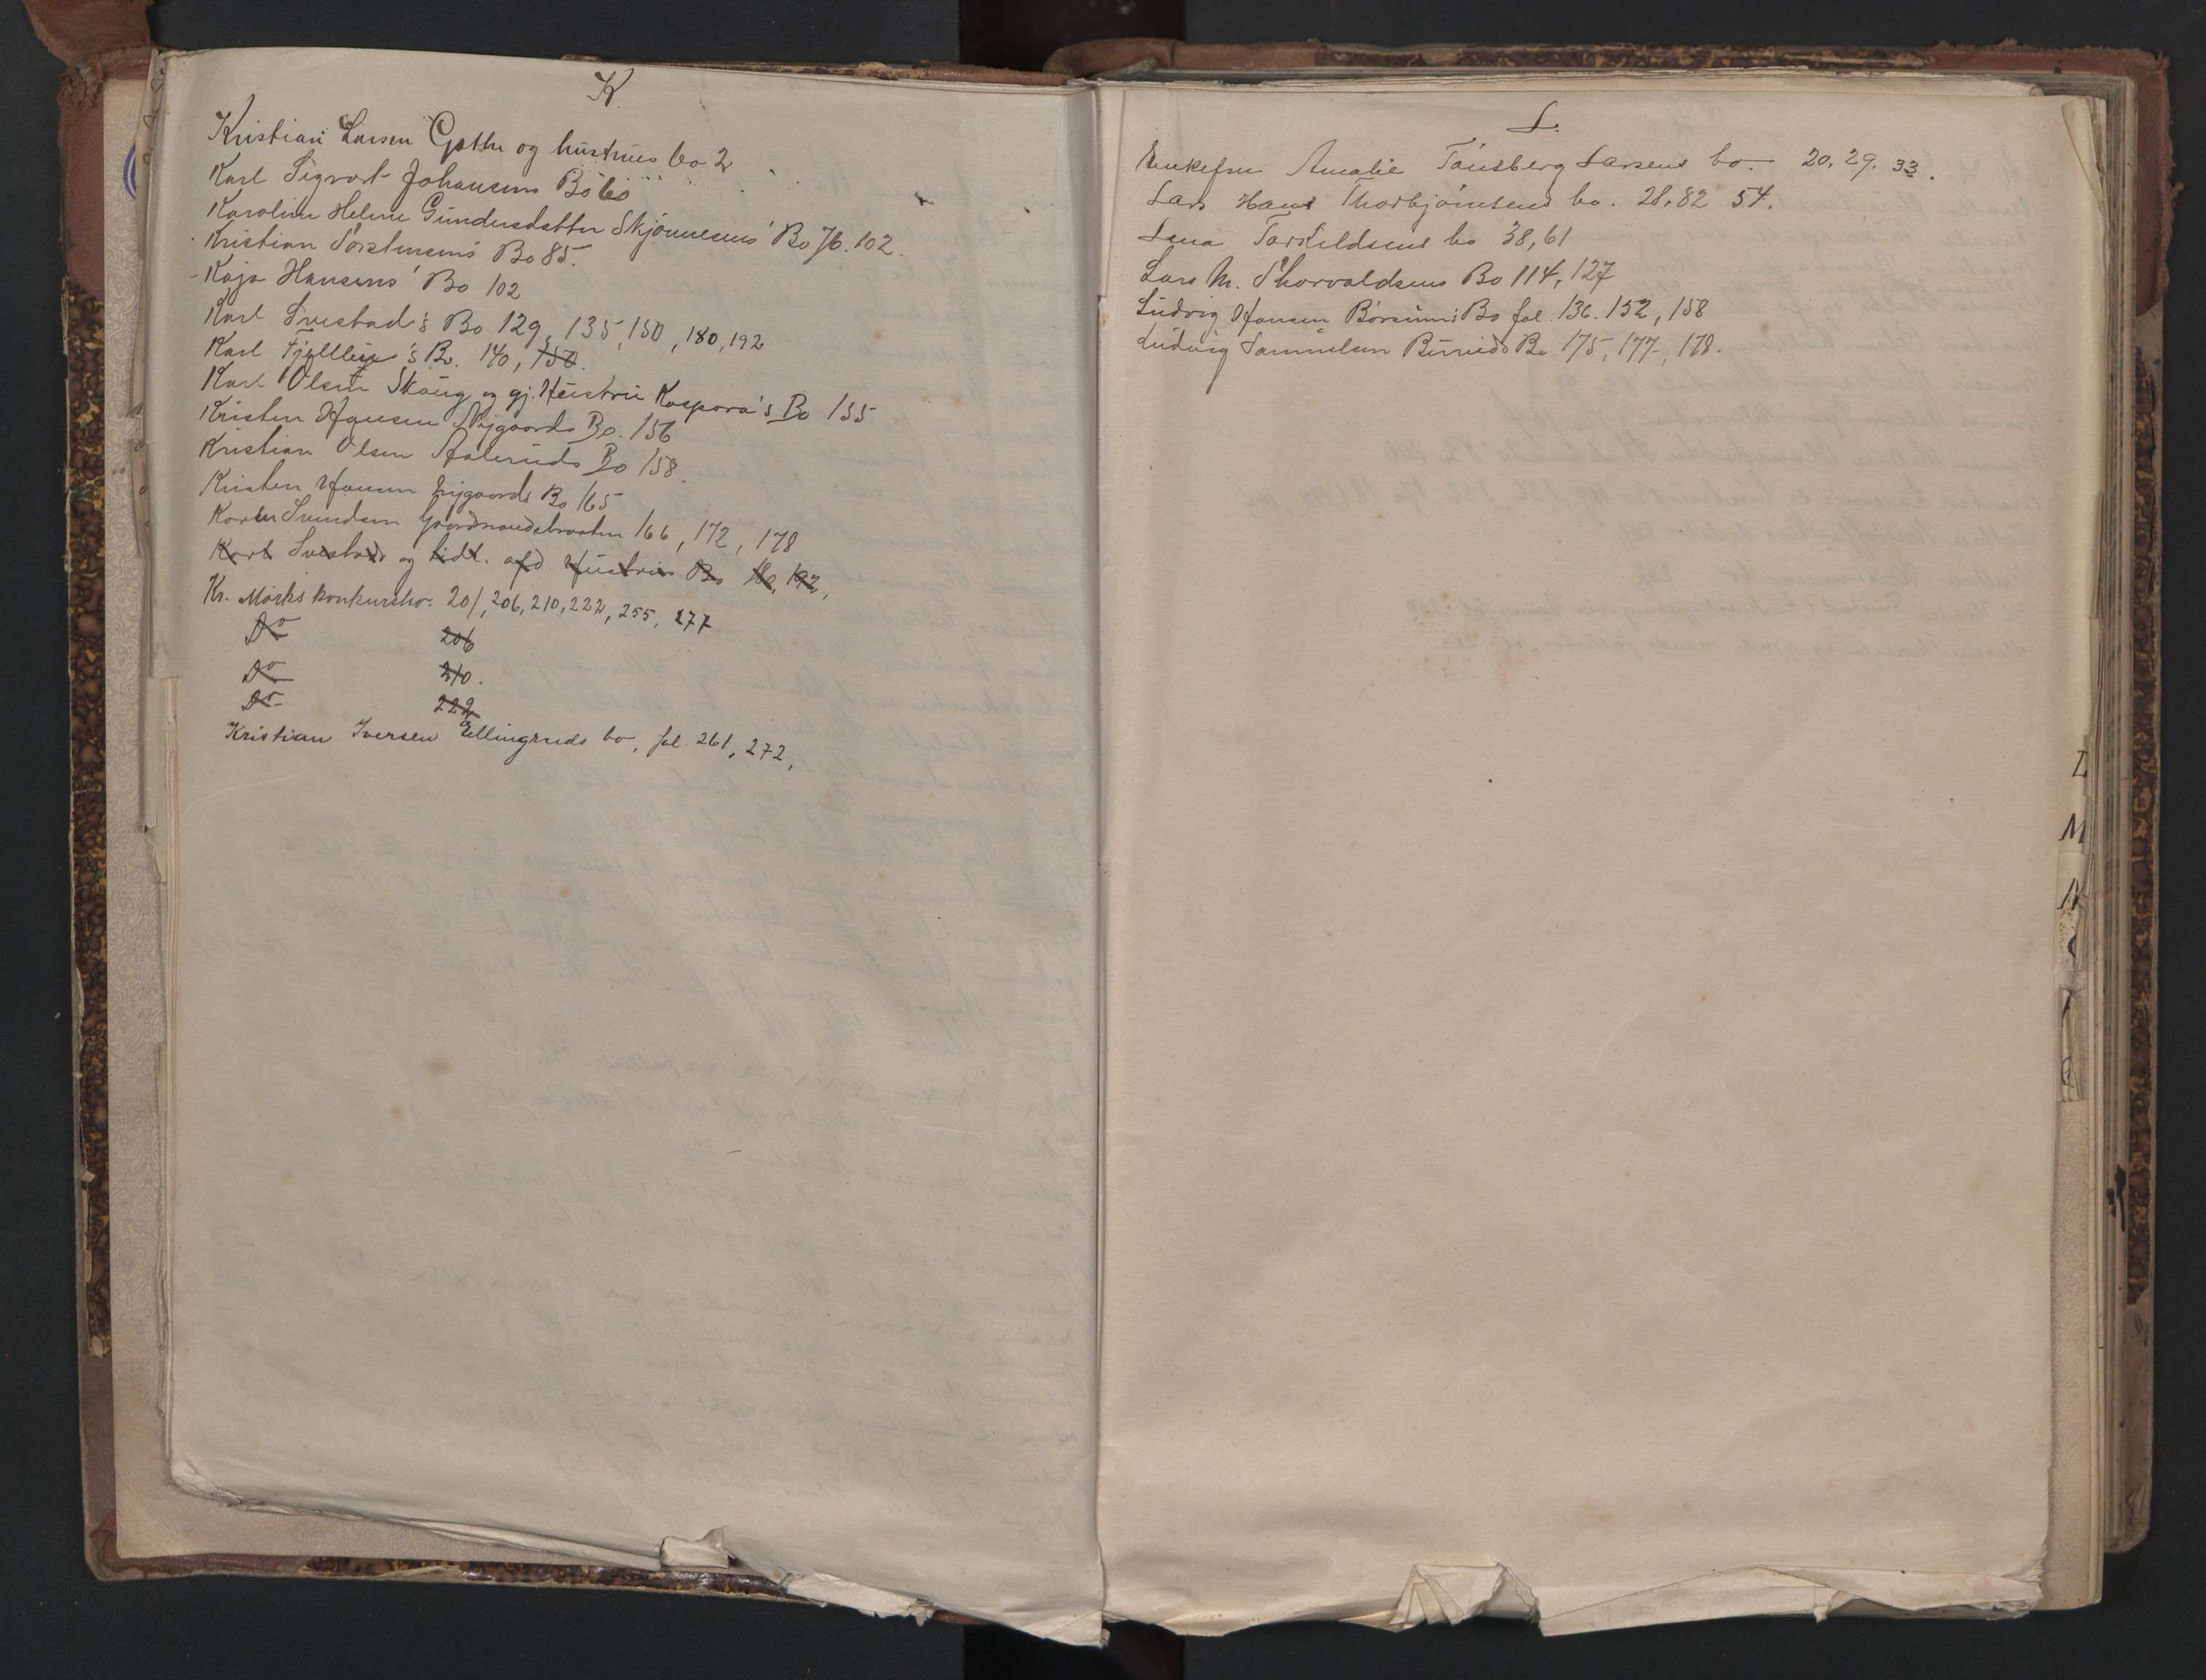 K.
Kristian Larsen Gøthr og hustrues bo 2
Karl Sigvart Johansens Bo 60
Karoline Helene Gundersdatter Skjønnesens' Bo 76. 102.
Kristian Torstensens' Bo 85.
Kaja Hansens' Bo 102
Karl Svestad's Bo 129, 135, 150, 180, 192
Karl Fjellbye's Bo. 140, 150.
Karl Olsen Skoug og gj. Hustru Kaspara's Bo 155
Kristen Hansen Nygaards Bo. 156
Kristian Olsen Aaleruds Bo 158.
Kristen Hansen Nygaards Bo 165
Karen Svendsen 166, 172, 178
Karl Svestads og tidl. afd. Hustrus Bo 180, 192,
Kr. Mørks konkursbo: 201, 206, 210, 222, 255, 277
Do 206
Do 210.
Do 222
Kristian Iversen Ellingruds bo, fol. 261, 272,
L.
Enkefru Amalie Tønsberg Larsens bo. 20, 29. 33.
Lars Hans Thorbjørnsens bo. 28, 82 54.
Lena Tarkeldsens bo 38, 61
Lars M. Thorvaldsens Bo 114, 127
Ludvig Hansen Børsums Bo fol. 136. 152, 158
Ludvig Samuelsen Buruds Bo 175, 177, 178.
L
M
N